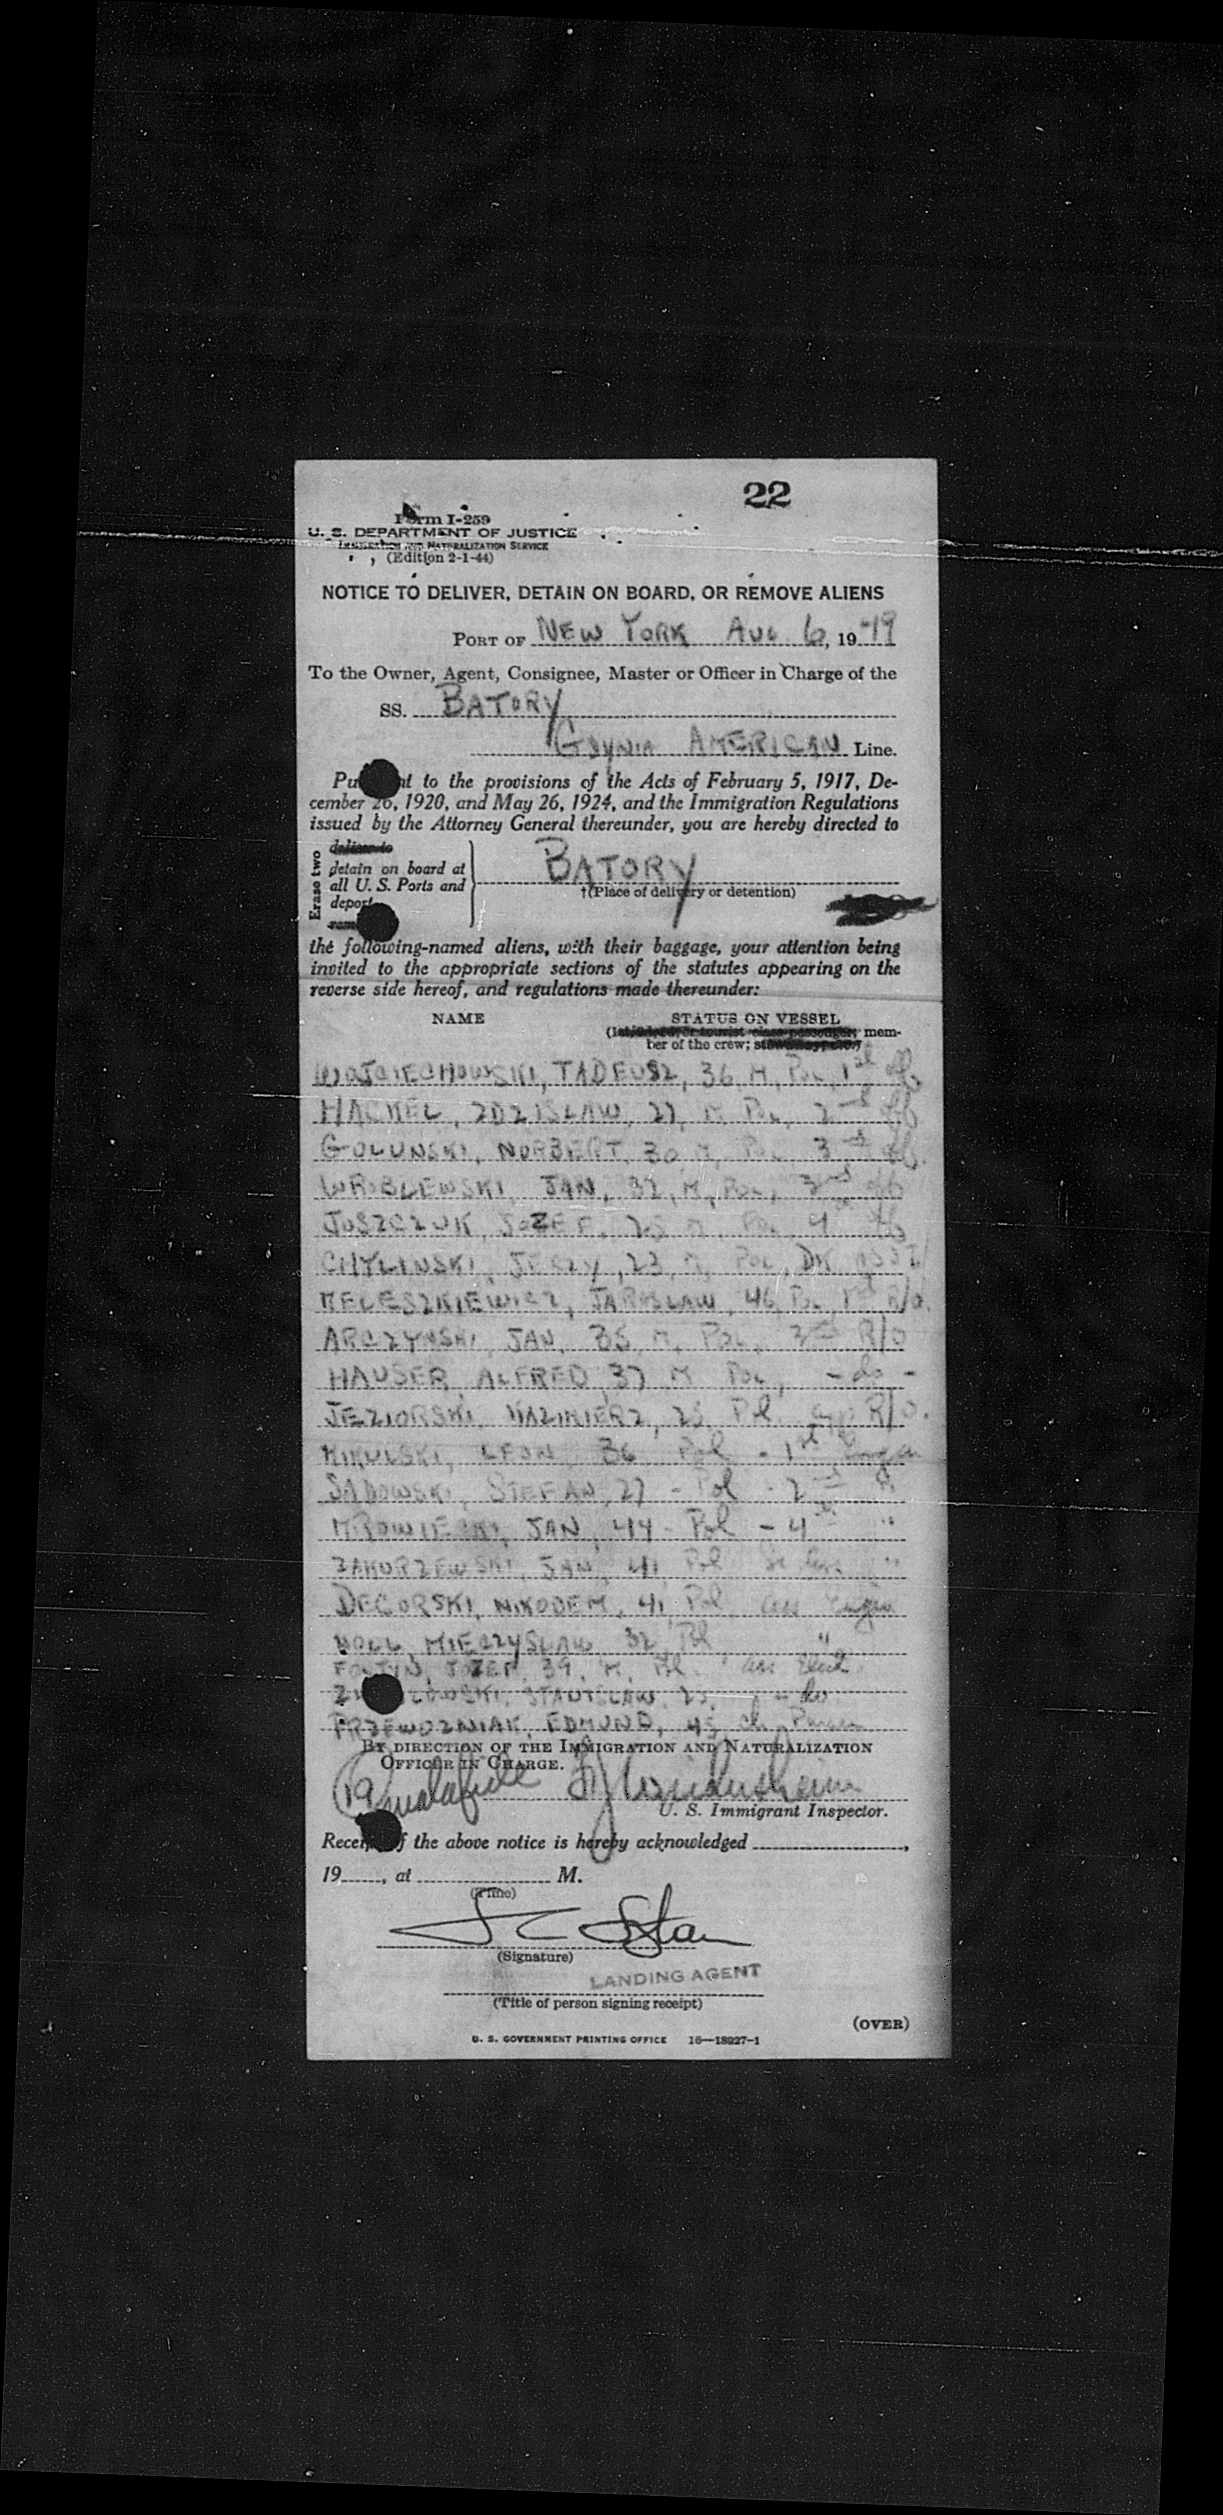 22
Form I-259
U. S. DEPARTMENT OF JUSTICE
IMMIGRATION AND NATURALIZATION SERVICE
(Edition 2-1-44)
NOTICE TO DELIVER, DETAIN ON BOARD, OR REMOVE ALIENS
PORT OF NEW YORK AUG 6, 19 49
To the Owner, Agent, Consignee, Master or Officer in Charge of the
SS. BATORY
GDYNIA AMERICAN Line.
Pu t to the provisions of the Acts of February 5, 1917, De-
cember 26, 1920, and May 26, 1924, and the Immigration Regulations
issued by the Attorney General thereunder, you are hereby directed to
Erase two
deliver to
detain on board at
all U. S. Ports and
deport
BATORY
†(Place of delivery or detention)
the following-named aliens, with their baggage, your attention being
invited to the appropriate sections of the statutes appearing on the
reverse side hereof, and regulations made thereunder:
NAME STATUS ON VESSEL
(1st, 2d, 3d, or tourist class passenger; mem-
ber of the crew; stowaway, etc.)
WOJCIECHOWSKI, TADEUSZ, 36, M, Pol, 1st off
HACKEL, ZDZISLAW, 27, M, Pol, 2nd off
GOLUNSKI, NORBERT, 30, M, Pol, 3rd off.
WROBLEWSKI, JAN, 32, M, Pol, 3rd off
JUSZCZUK, JOZEF, 25, M, Pol, 4th off
CHYLINSKI, JERZY, 23, M, Pol, DK ASST
MELESZKIEWICZ, JAROSLAW, 46, Pol, 1st R/O.
ARCZYNSKI, JAN, 35, M, Pol, 2nd R/O
HAUSER ALFRED, 37 M Pol, - do -
JEZIORSKI, KAZIMIERZ, 25, Pol R/O.
MIKULSKI, LEON, 36 Pol - 1st Engin
SADOWSKI, STEFAN, 27 - Pol - 2nd "
MROWIECKI, JAN, 44 - Pol - 4th "
ZAKURZEWSKI, JAN, 41 Pol "
DEGORSKI, NIKODEM, 41 Pol ass Engin
NOLL, MIECZYSLAW 32, Pol "
FOLTYN, JOZEF, 39, M, Pol ass Elect.
STANISLAW, 25, - do
PRZEWOZNIAK, EDMUND, 45, ch. Purser
BY DIRECTION OF THE IMMIGRATION AND NATURALIZATION
OFFICER IN CHARGE.
U. S. Immigrant Inspector.
Recei f the above notice is hereby acknowledged ,
19 , at M.
(Time)
(Signature)
LANDING AGENT
(Title of person signing receipt)
(OVER)
U. S. GOVERNMENT PRINTING OFFICE 16—18927-1